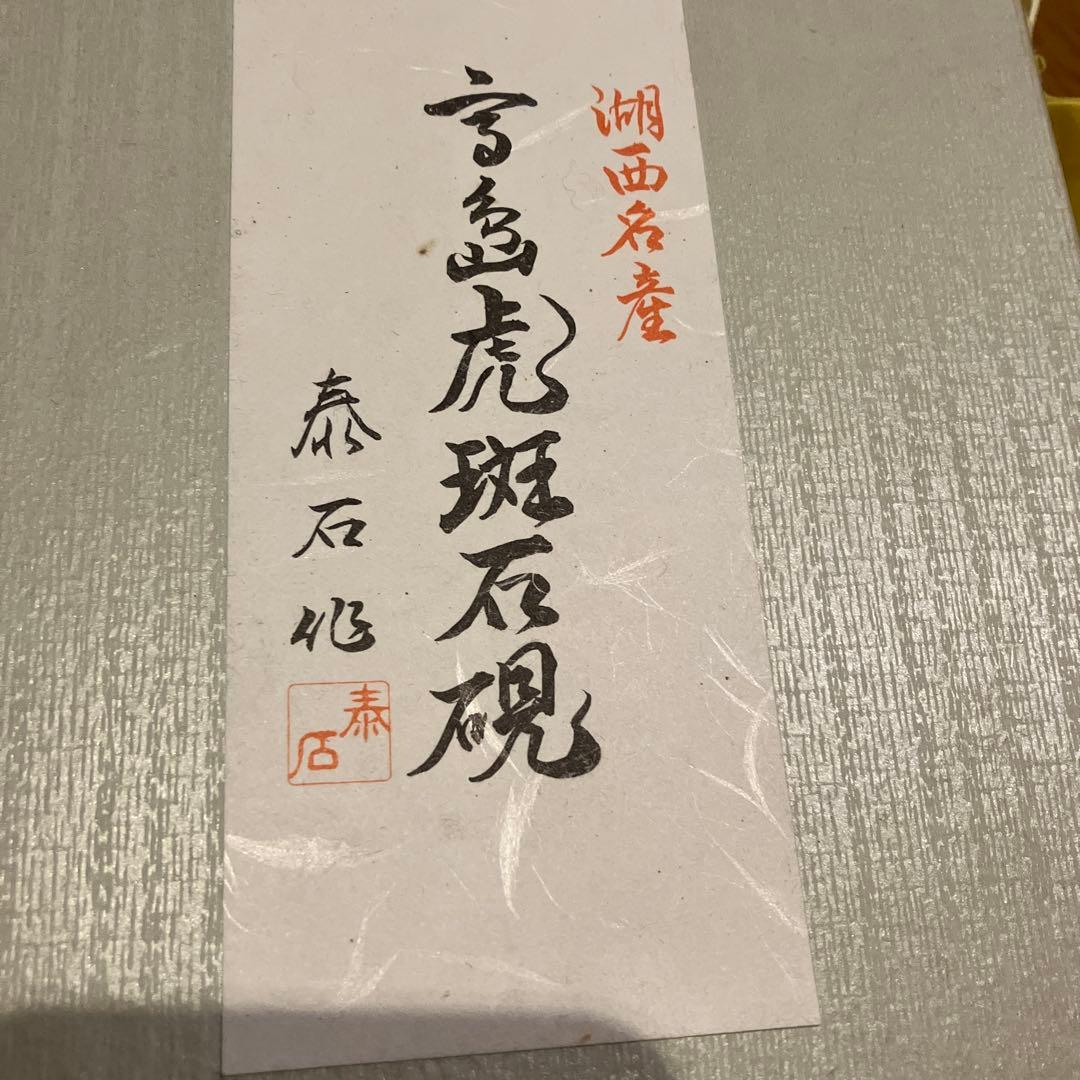 湖西名産
高島虎斑石硯
泰石作
泰石